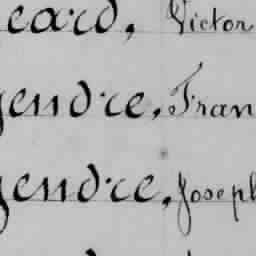 eard, Victor
gendre, Fran
gendre, Joseph